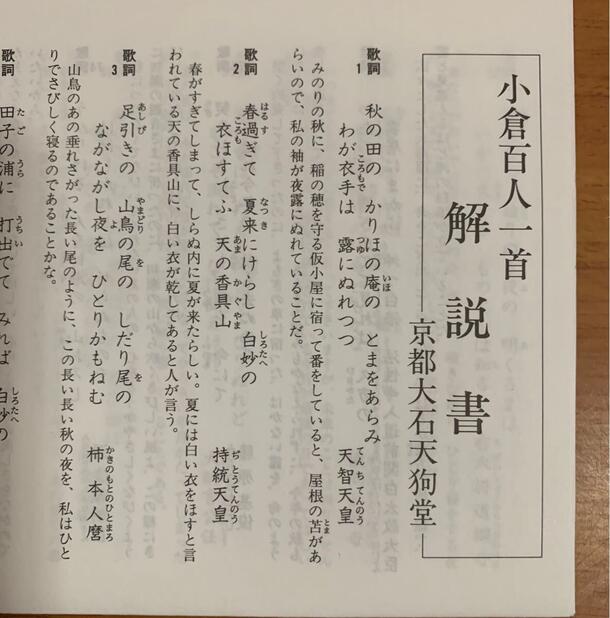 小倉百人一首
解説書
京都大石天狗堂
歌詞
1 秋の田の かりほの庵の とまをあらみ
わが衣手は 露にぬれつつ 天智天皇
みのりの秋に、稲の穂を守る仮小屋に宿って番をしていると、屋根の苫があ
らいので、私の袖が夜露にぬれていることだ。
歌詞
2 春過ぎて 夏来にけらし 白妙の
衣ほすてふ 天の香具山 持統天皇
春がすぎてしまって、しらぬ内に夏が来たらしい。夏には白い衣をほすと言
われている天の香具山に、白い衣が乾してあると人が言う。
歌詞
3 足引きの 山鳥の尾の しだり尾の
ながながし夜を ひとりかもねむ 柿本人麿
山鳥のあの垂れさがった長い尾のように、この長い長い秋の夜を、私はひと
りでさびしく寝るのであることかな。
歌詞
田子の浦に 打出でて みれば 白妙の